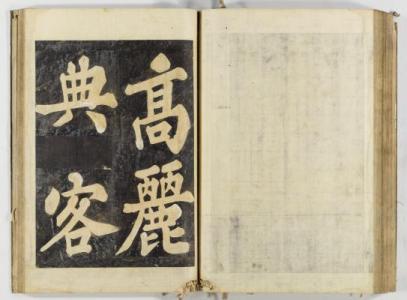 高麗
典客